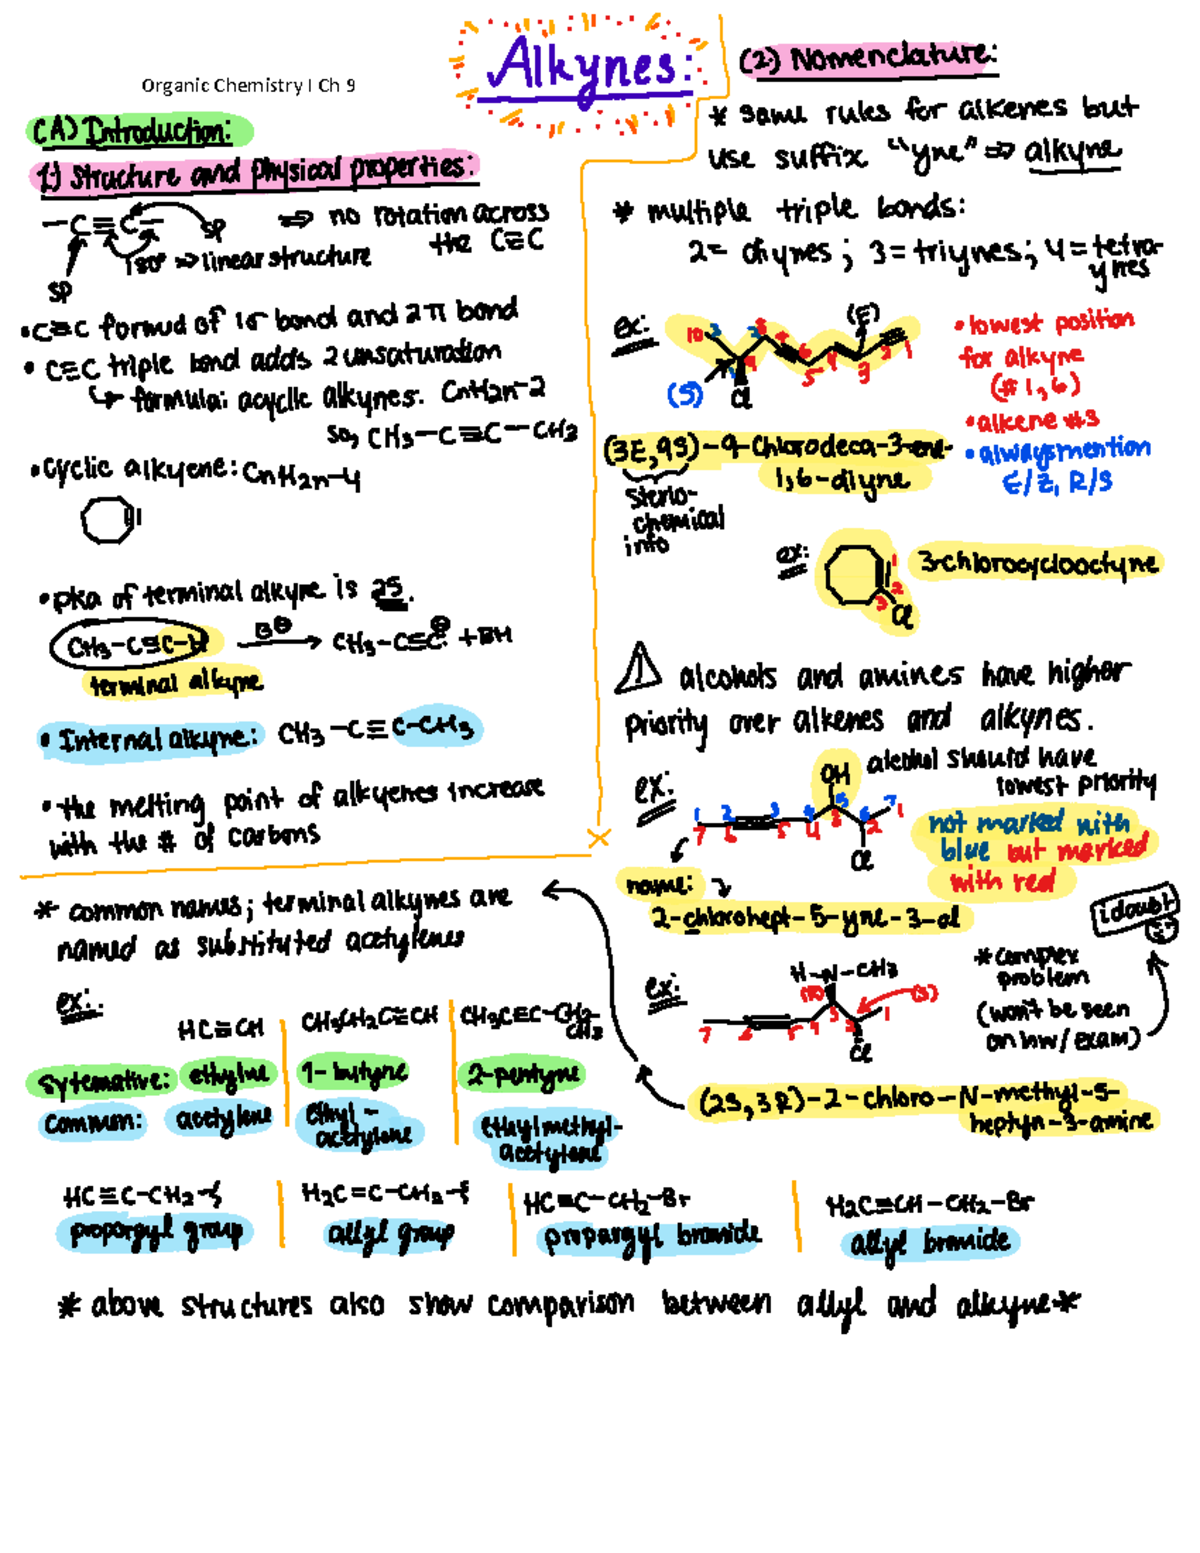 Organic Chemistry I Ch 9
Alkynes:
(A) Introduction:
1.) Structure and physical properties:
—C≡C— sp ⇒ no rotation across
the C≡C
180° ⇒ linear structure
sp
• C≡C formed of 1σ bond and 2π bond
• C≡C triple bond adds 2 unsaturation
↳ formula: acyclic alkynes: CnH2n-2
so, CH3—C≡C—CH3
• cyclic alkyene: CnH2n-4
• pka of terminal alkyne is 25.
CH3—C≡C—H B⊖ → CH3—C≡C:⊖ + BH
terminal alkyne
• Internal alkyne: CH3—C≡C—CH3
• the melting point of alkyenes increase
with the # of carbons
(2) Nomenclature:
* same rules for alkenes but
use suffix "yne" ⇒ alkyne
* multiple triple bonds:
2= diynes; 3=triynes; 4=tetra-
ynes
ex: 10 9 8 7 6 5 4 3 2 1 (E)
(S) Cl
• lowest position
for alkyne
(#1,6)
• alkene #3
• always mention
E/Z, R/S
(3E,9S)-9-Chlorodeca-3-ene-
1,6-diyne
sterio-
chemical
info
ex: 1 2 3 Cl 3-chlorocyclooctyne
⚠ alcohols and amines have higher
priority over alkenes and alkynes.
ex: OH alcohol should have
lowest priority
1 2 3 4 5 6 7
7 6 5 4 3 2 1
Cl
not marked with
blue but marked
with red
name:
2-chlorohept-5-yne-3-ol
i doubt
ex: H—N—CH3
(R) (S)
7 6 5 4 3 2 1
Cl
* complex
problem
(won't be seen
on hw/exam)
(2S,3R)-2-chloro-N-methyl-5-
heptyn-3-amine
* common names; terminal alkynes are
named as substituted acetylenes
ex:
HC≡CH CH3CH2C≡CH CH3C≡C—CH2—
CH3
Sytemative: ethylne 1-butyne 2-pentyne
Common: acetylene ethyl-
acetylene
ethylmethyl-
acetylene
HC≡C—CH2—ξ H2C=C—CH2—ξ HC≡C—CH2—Br H2C≡CH—CH2—Br
proporgyl group allyl group propargyl bromide allyl bromide
* above structures also show comparison between allyl and alkyne*